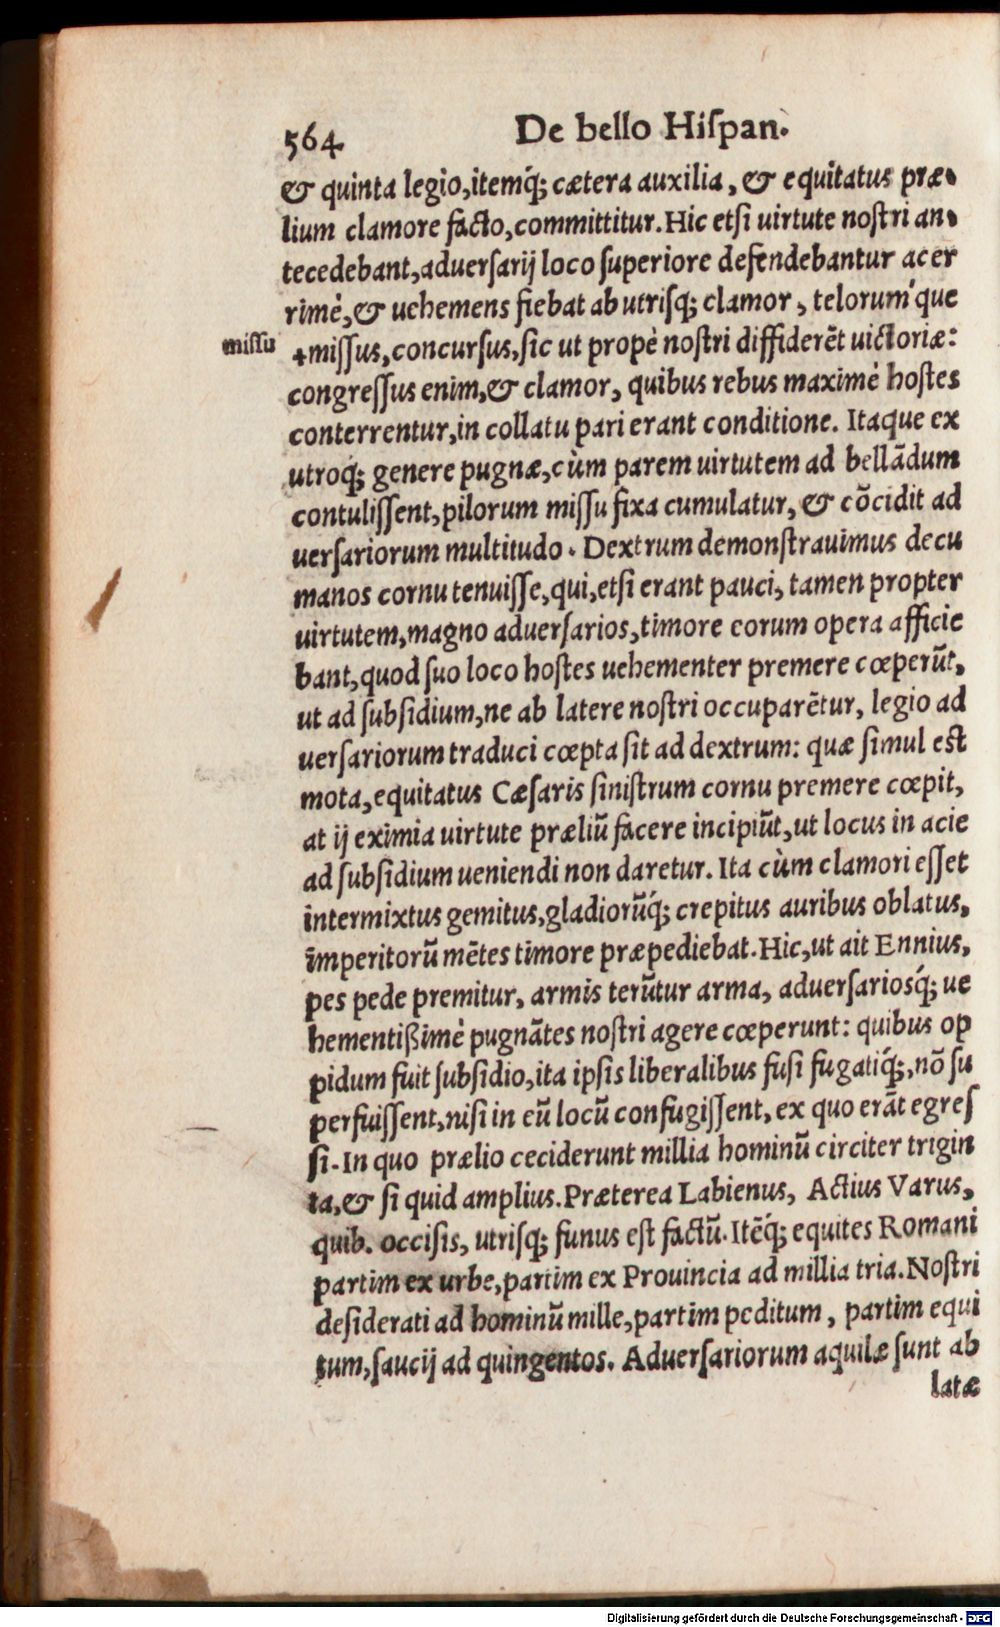 564 De bello Hiſpan.
& quinta legio,itemq́; cætera auxilia, & equitatus præ-
lium clamore facto,committitur.Hic etſi uirtute noſtri an-
tecedebant,aduerſarij loco ſuperiore defendebantur acer
rimè,& uehemens fiebat ab utriſq; clamor, telorum'que
miſſu +miſſus,concurſus,ſic ut propè noſtri diffiderēt uictoriæ:
congreſſus enim,& clamor, quibus rebus maximè hoſtes
conterrentur,in collatu pari erant conditione. Itaque ex
utroq́; genere pugnæ,cùm parem uirtutem ad bellādum
contuliſſent,pilorum miſſu fixa cumulatur, & cōcidit ad
uerſariorum multitudo. Dextrum demonſtrauimus decu
manos cornu tenuiſſe,qui,etſi erant pauci, tamen propter
uirtutem,magno aduerſarios,timore eorum opera afficie
bant,quod ſuo loco hoſtes uehementer premere cœperūt,
ut ad ſubſidium,ne ab latere noſtri occuparētur, legio ad
uerſariorum traduci cœpta ſit ad dextrum: quæ ſimul eſt
mota,equitatus Cæſaris ſiniſtrum cornu premere cœpit,
at ij eximia uirtute præliū facere incipiūt,ut locus in acie
ad ſubſidium ueniendi non daretur. Ita cùm clamori eſſet
intermixtus gemitus,gladiorūq́; crepitus auribus oblatus,
imperitorū mētes timore præpediebat.Hic,ut ait Ennius,
pes pede premitur, armis terūtur arma, aduerſarioſq́; ue
hementißimè pugnātes noſtri agere cœperunt: quibus op
pidum fuit ſubſidio,ita ipſis liberalibus fuſi fugatiq́;,nō ſu
perfuiſſent,niſi in eū locū confugiſſent, ex quo erāt egreſ
ſi. In quo prælio ceciderunt millia hominū circiter trigin
ta,& ſi quid amplius.Præterea Labienus, Actius Varus,
quib. occiſis, utriſq; funus eſt factū. Itēq́; equites Romani
partim ex urbe,partim ex Prouincia ad millia tria.Noſtri
deſiderati ad hominū mille,partim peditum, partim equi
tum,ſaucij ad quingentos. Aduerſariorum aquilæ ſunt ab
latæ
Digitalisierung gefördert durch die Deutsche Forschungsgemeinschaft - DFG